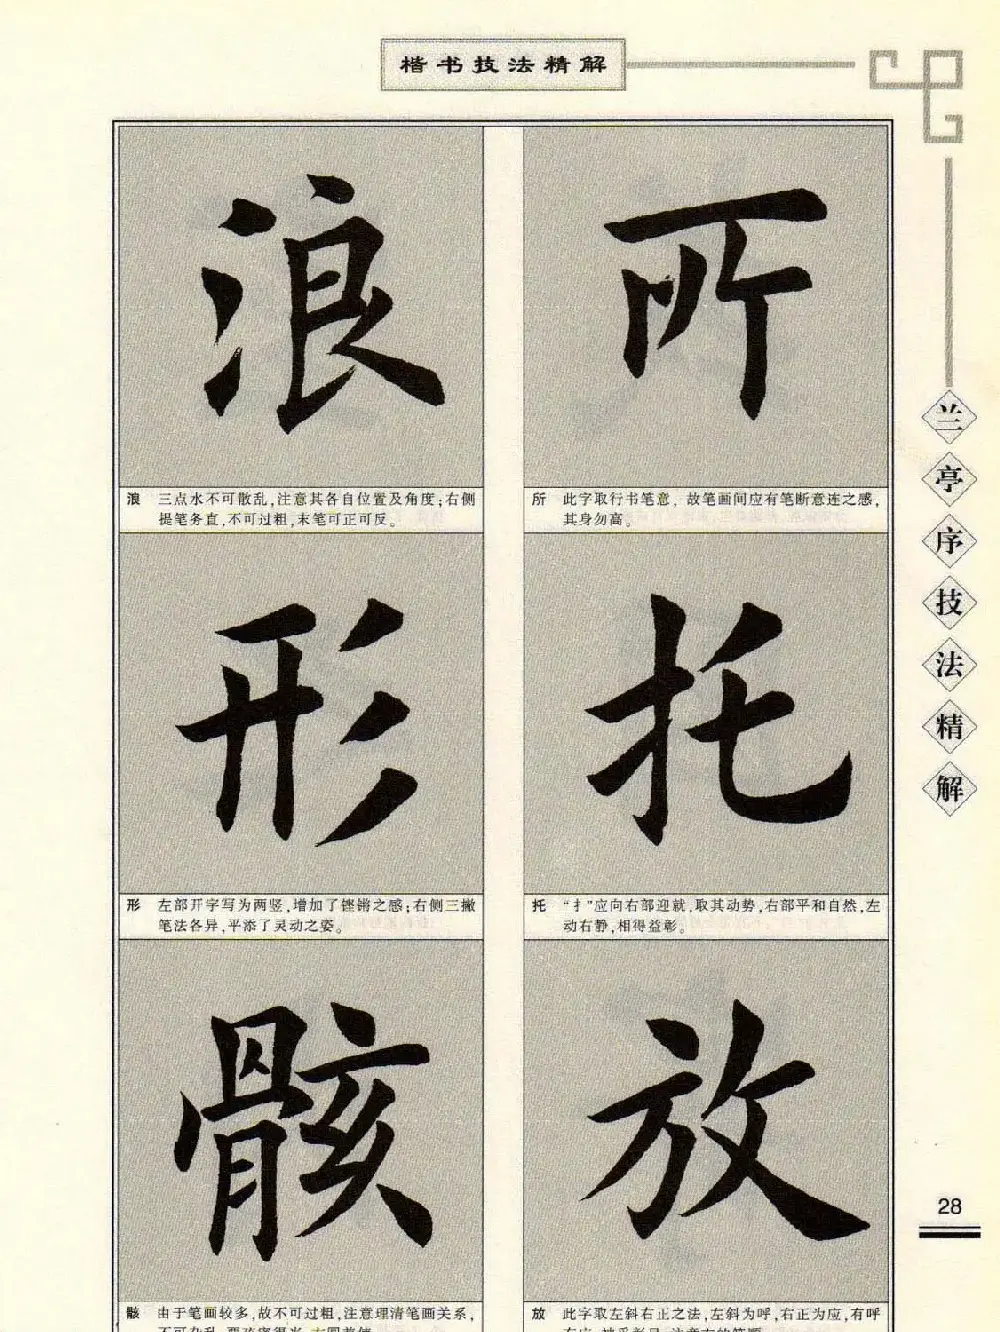 楷书技法精解
浪
所
浪 三点水不可散乱,注意其各自位置及角度;右侧
提笔务直,不可过粗,末笔可正可反。
所 此字取行书笔意,故笔画间应有笔断意连之感,
其身勿高。
形
托
形 左部开字写为两竖,增加了铿锵之感;右侧三撇
笔法各异,平添了灵动之姿。
托 “扌”应向右部迎就,取其动势,右部平和自然,左
动右静,相得益彰。
骸
放
骸 由于笔画较多,故不可过粗,注意理清笔画关系,
放 此字取左斜右正之法,左斜为呼,右正为应,有呼
兰亭序技法精解
28